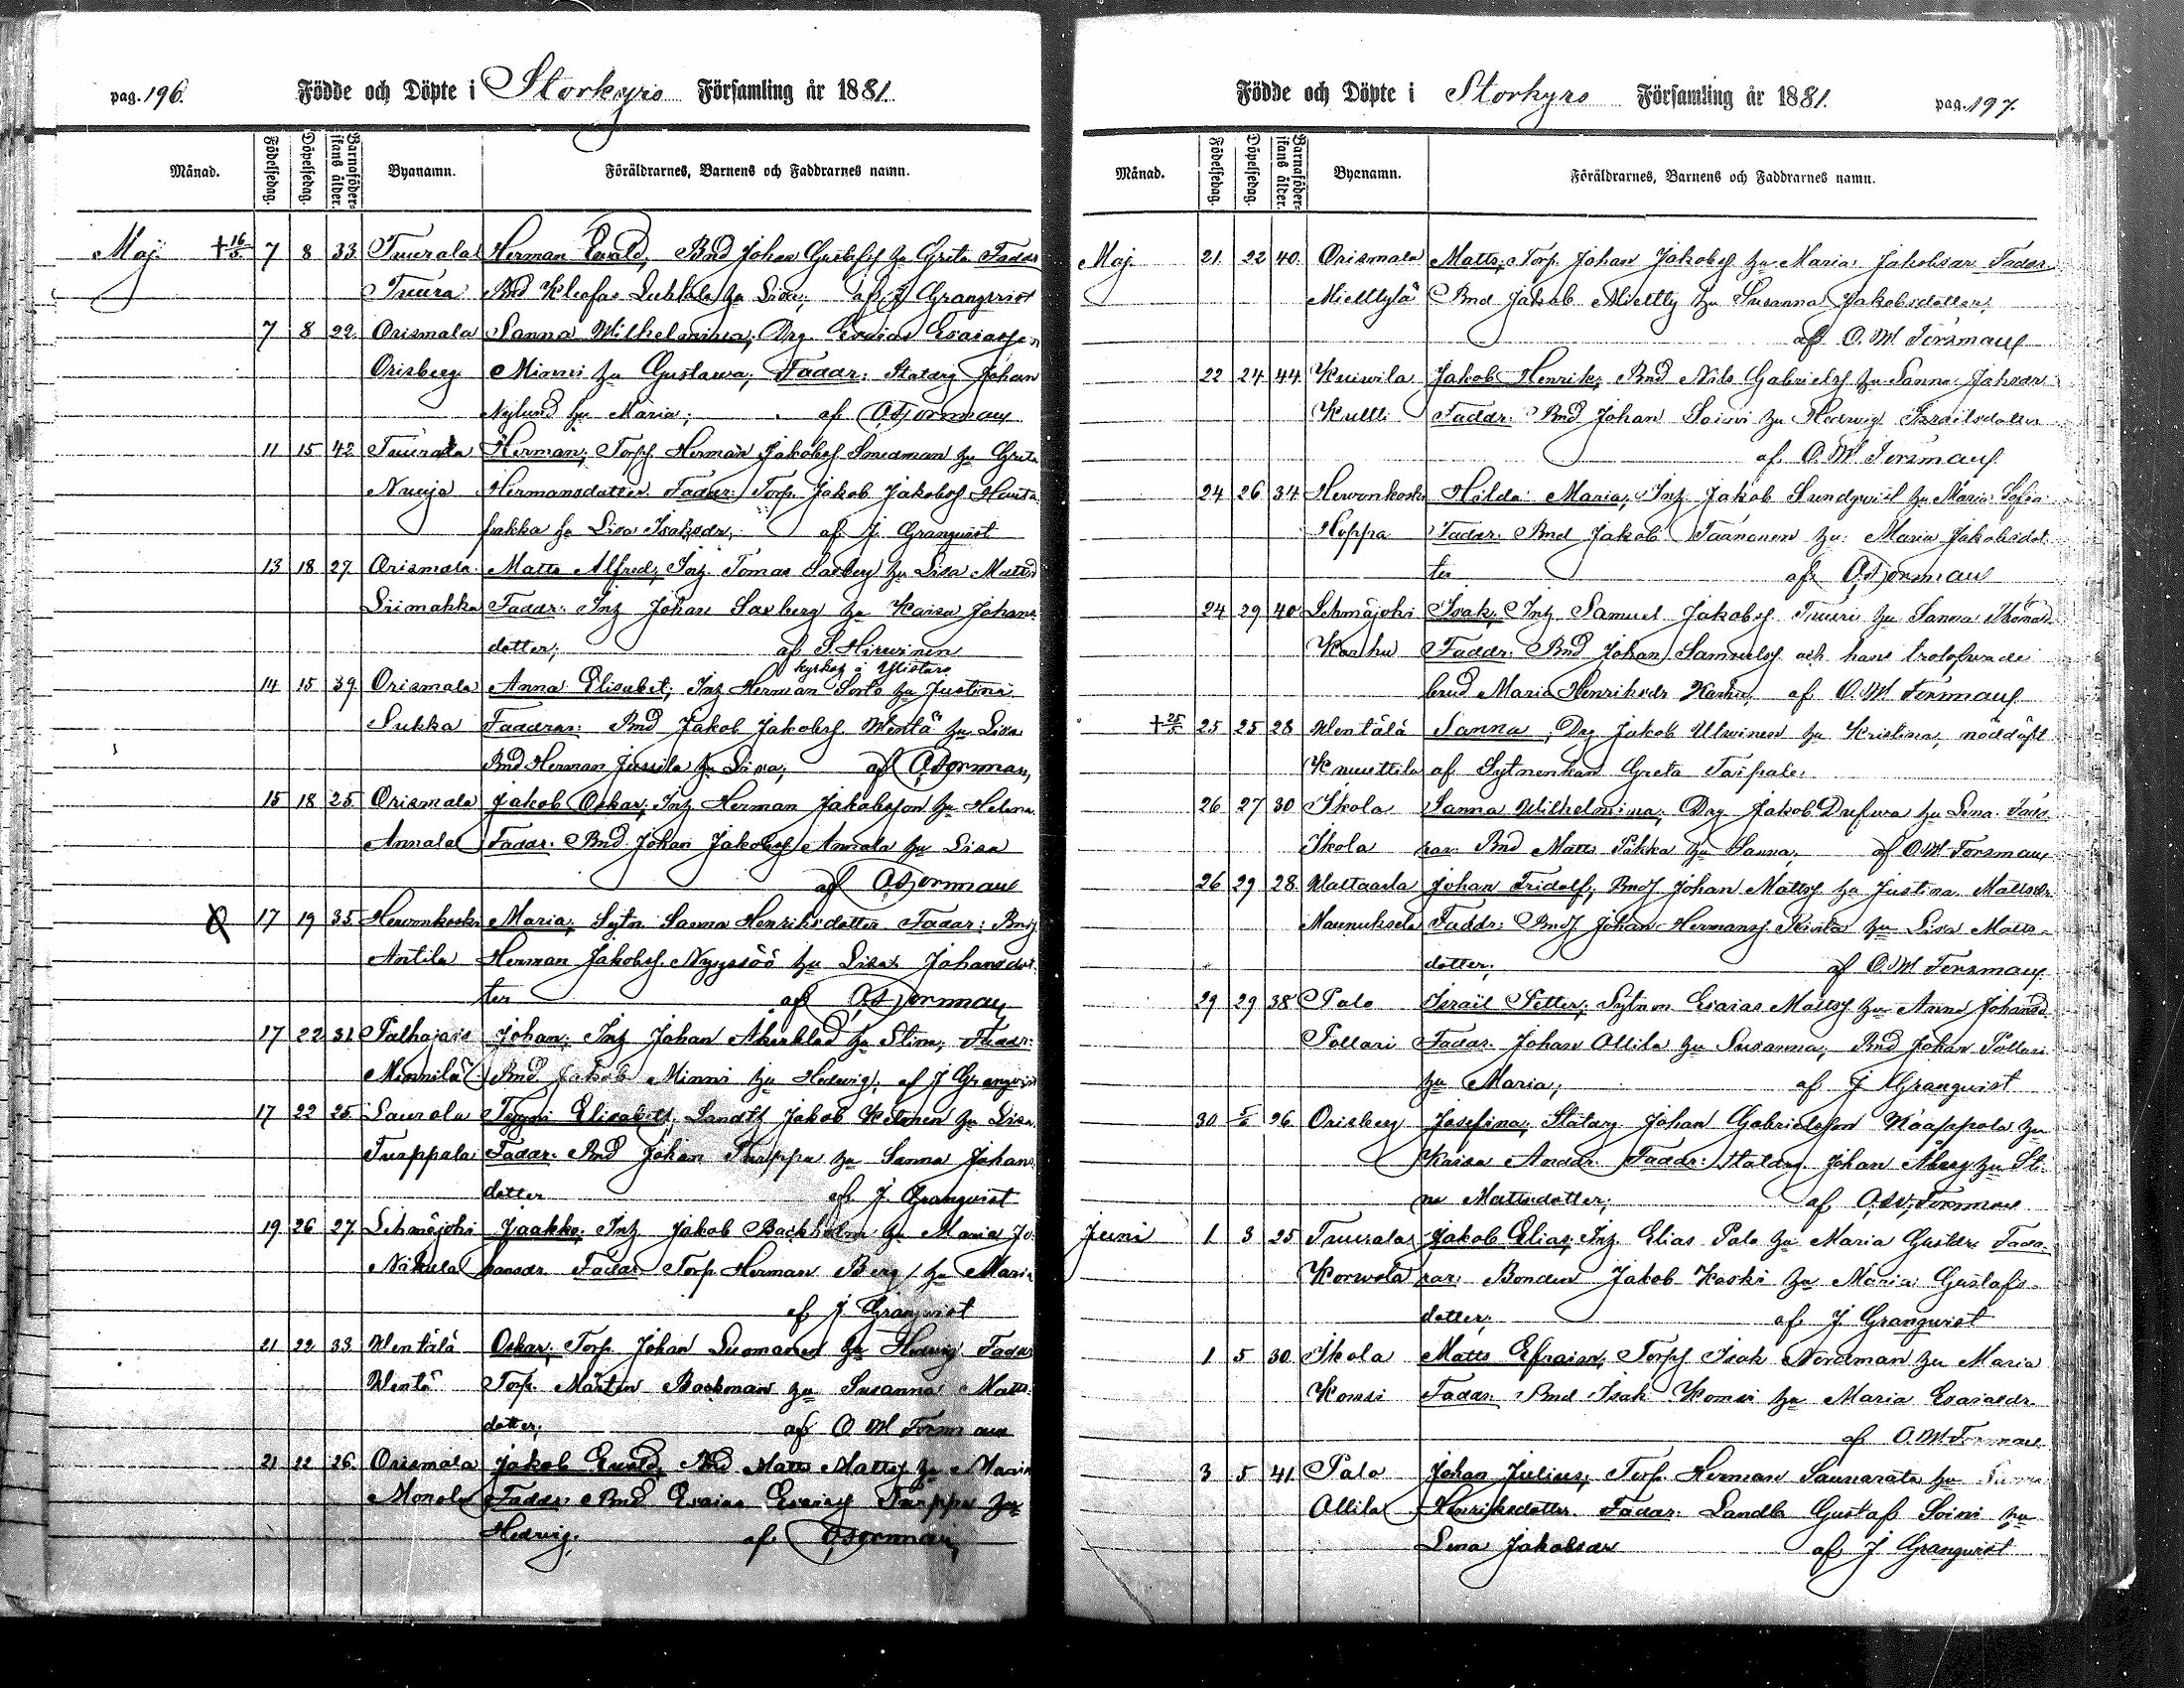 pag. 196.
Födde och Döpte i Storkyro Församling år 1881.
Månad. Födelsedag. Döpelsedag. Barnaföderskans ålder. Byanamn. Föräldrarnes, Barnens och Faddrarnes namn.
Maj. † 16/5 7 8 33 Tuurala Herman Evald, Bnd Johan Gustafss hu Greta Faddr
Tuura Bnd Kleofas hu Lisa; af J Granqvist
7 8 22 Orismala Sanna Wilhelmina; Drg Esaias Esaiasson
Orisberg Minni hu Gustawa; Faddr: Statdrg Johan
Nylund hu Maria; af O W Forsman
11 15 42 Tuurala Herman; Torpf Herman Jakobss Smedman hu Greta
Nuuja Hermansdotter. Faddr: Torp. Jakob Jakobss Hauta
pakka hu Lisa Isaksdr, af J. Granqvist
13 18 27 Orismala Matts Alfred; Inh Tomas Saxberg hu Lisa Mattsd
Liimakka Faddr: Inh Johan Saxberg hu Kaisa Johans
dotter; af S. Hirwinen
kyrkoh i Ylistaro
14 15 39 Orismala Anna Elisabet; Inh Herman hu Justina
Sukka Faddrar: Bnd Jakob Jakobss. Wentä hu Lisa
Bnd Herman Jussila hu Lisa; af O W Forsman
15 18 25 Orismala Jakob Oskar; Inh Herman Jakobsson hu Helena
Annala Faddr. Bnd Johan Jakobss Annala hu Lisa
af O W Forsman
17 19 35 Herronkoski Maria; Sytn Sanna Henriksdotter Faddr: Bnds
Antila Herman Jakobss. Nyyssöö hu Lisa Johansdot
ter af O W Forsman
17 22 31 Palhojais Johan; Inh Johan Åkerblad hu Stina; Faddr:
Minnilä Bnd Jakob Minni hu Hedwig; af J Granqvist
17 22 25 Laurola Tyyni Elisabet; Landtb Jakob Ketonen hu Lisa
Turppala Faddr. Bnd Johan Turppa hu Sanna Johans
dotter af J. Granqvist
19 26 27 Lehmäjoki Jaakko; Inh Jakob Backholm hu Maria Jo
Nikula hansdr. Faddr. Torp Herman Berg hu Maria
af J Granqvist
21 22 33 Wentälä Oskar; Torp. Johan Luomanen hu Hedwig Faddr
Wentä Torp. Mårten Backman hu Susanna Matts
dotter; af O W Forsman
21 22 26 Orismala Jakob Evald, Bnd Matts Mattss hu Maria
Monola Faddr. Bnd Esaias Esaiass Turppa hu
Hedwig; af O W Forsman
Födde och Döpte i Storkyro Församling år 1881.
pag. 197.
Månad. Födelsedag. Döpelsedag. Barnaföderskans ålder. Byanamn. Föräldrarnes, Barnens och Faddrarnes namn.
Maj. 21 22 40 Orismala Matts; Torp. Johan Jakobss hu Maria Jakobsdr Faddr
Mielttylä Bnd Jakob Mieltty hu Susanna Jakobsdotter;
af O. W. Forsman
22 24 44 Kuiwila Jakob Henrik; Bnd Nils Gabrielss hu Sanna Johsdr
Kultti Faddr: Bnd Johan Soini hu Hedwig Israilsdotter
af O. W. Forsman
24 26 34 Herronkoski Hilda Maria; Inh Jakob Lundqvist hu Maria Sofia
Hoppa Faddr. Bnd Jakob Taanonen hu Maria Jakobsdot
ter af O W Forsman
24 29 40 Lehmäjoki Isak; Inh Samuel Jakobss. Tuuri hu Sanna Thomasd
Karhu Faddr. Bnd Johan Samuelss och hans trolofwade
brud Maria Henriksdr Karhu; af O. W. Forsman
† 25/5 25 25 28 Wentälä Sanna; Drg Jakob Ulwinen hu Kristina, nöddöpt
Knuuttila af Sytnenkan Greta Taipale.
26 27 30 Ikola Sanna Wilhelmina; Drg Jakob Dufwa hu Lena. Fadd
Ikola rar. Bnd Matts Pukka hu Sanna; af O W Forsman
26 29 28 Waltaala Johan Fridolf; Bnds Johan Mattss hu Justina Mattsdr
Maunuksela Faddr: Bnds Johan Hermanss. Riwila hu Lisa Matts-
dotter; af O. W Forsman
29 29 38 Palo Israil Petter; Sytnen Esaias Mattss hu Anna Johansd.
Pollari Faddr. Johan Ollila hu Susanna; Bnd Johan Pollari
hu Maria; af J Granqvist
30 5/6 26 Orisberg Josefina; Statdrg Johan Gabrielsson Waappola hu
Kaisa Andsdr. Faddr: Statdrg Johan Åberg hu Sti
na Mattsdotter; af O. W. Forsman
Juni 1 3 25 Tuurala Jakob Elias; Inh Elias Palo hu Maria Gustdr. Fadd-
Korwola rar. Bonden Jakob Kaski hu Maria Gustafs-
dotter; af J Granqvist
1 5 30 Ikola Matts Efraim; Torpf Isak Nordman hu Maria
Komsi Faddr. Bnd Isak Komsi hu Maria Esaiasdr.
af O. W. Forsman
3 5 41 Palo Johan Julius; Torp. Herman Saunarata hu Sanna
Ollila Henriksdotter. Faddr. Landtb Gustaf Soini hu
Lena Jakobsdr af J Granqvist